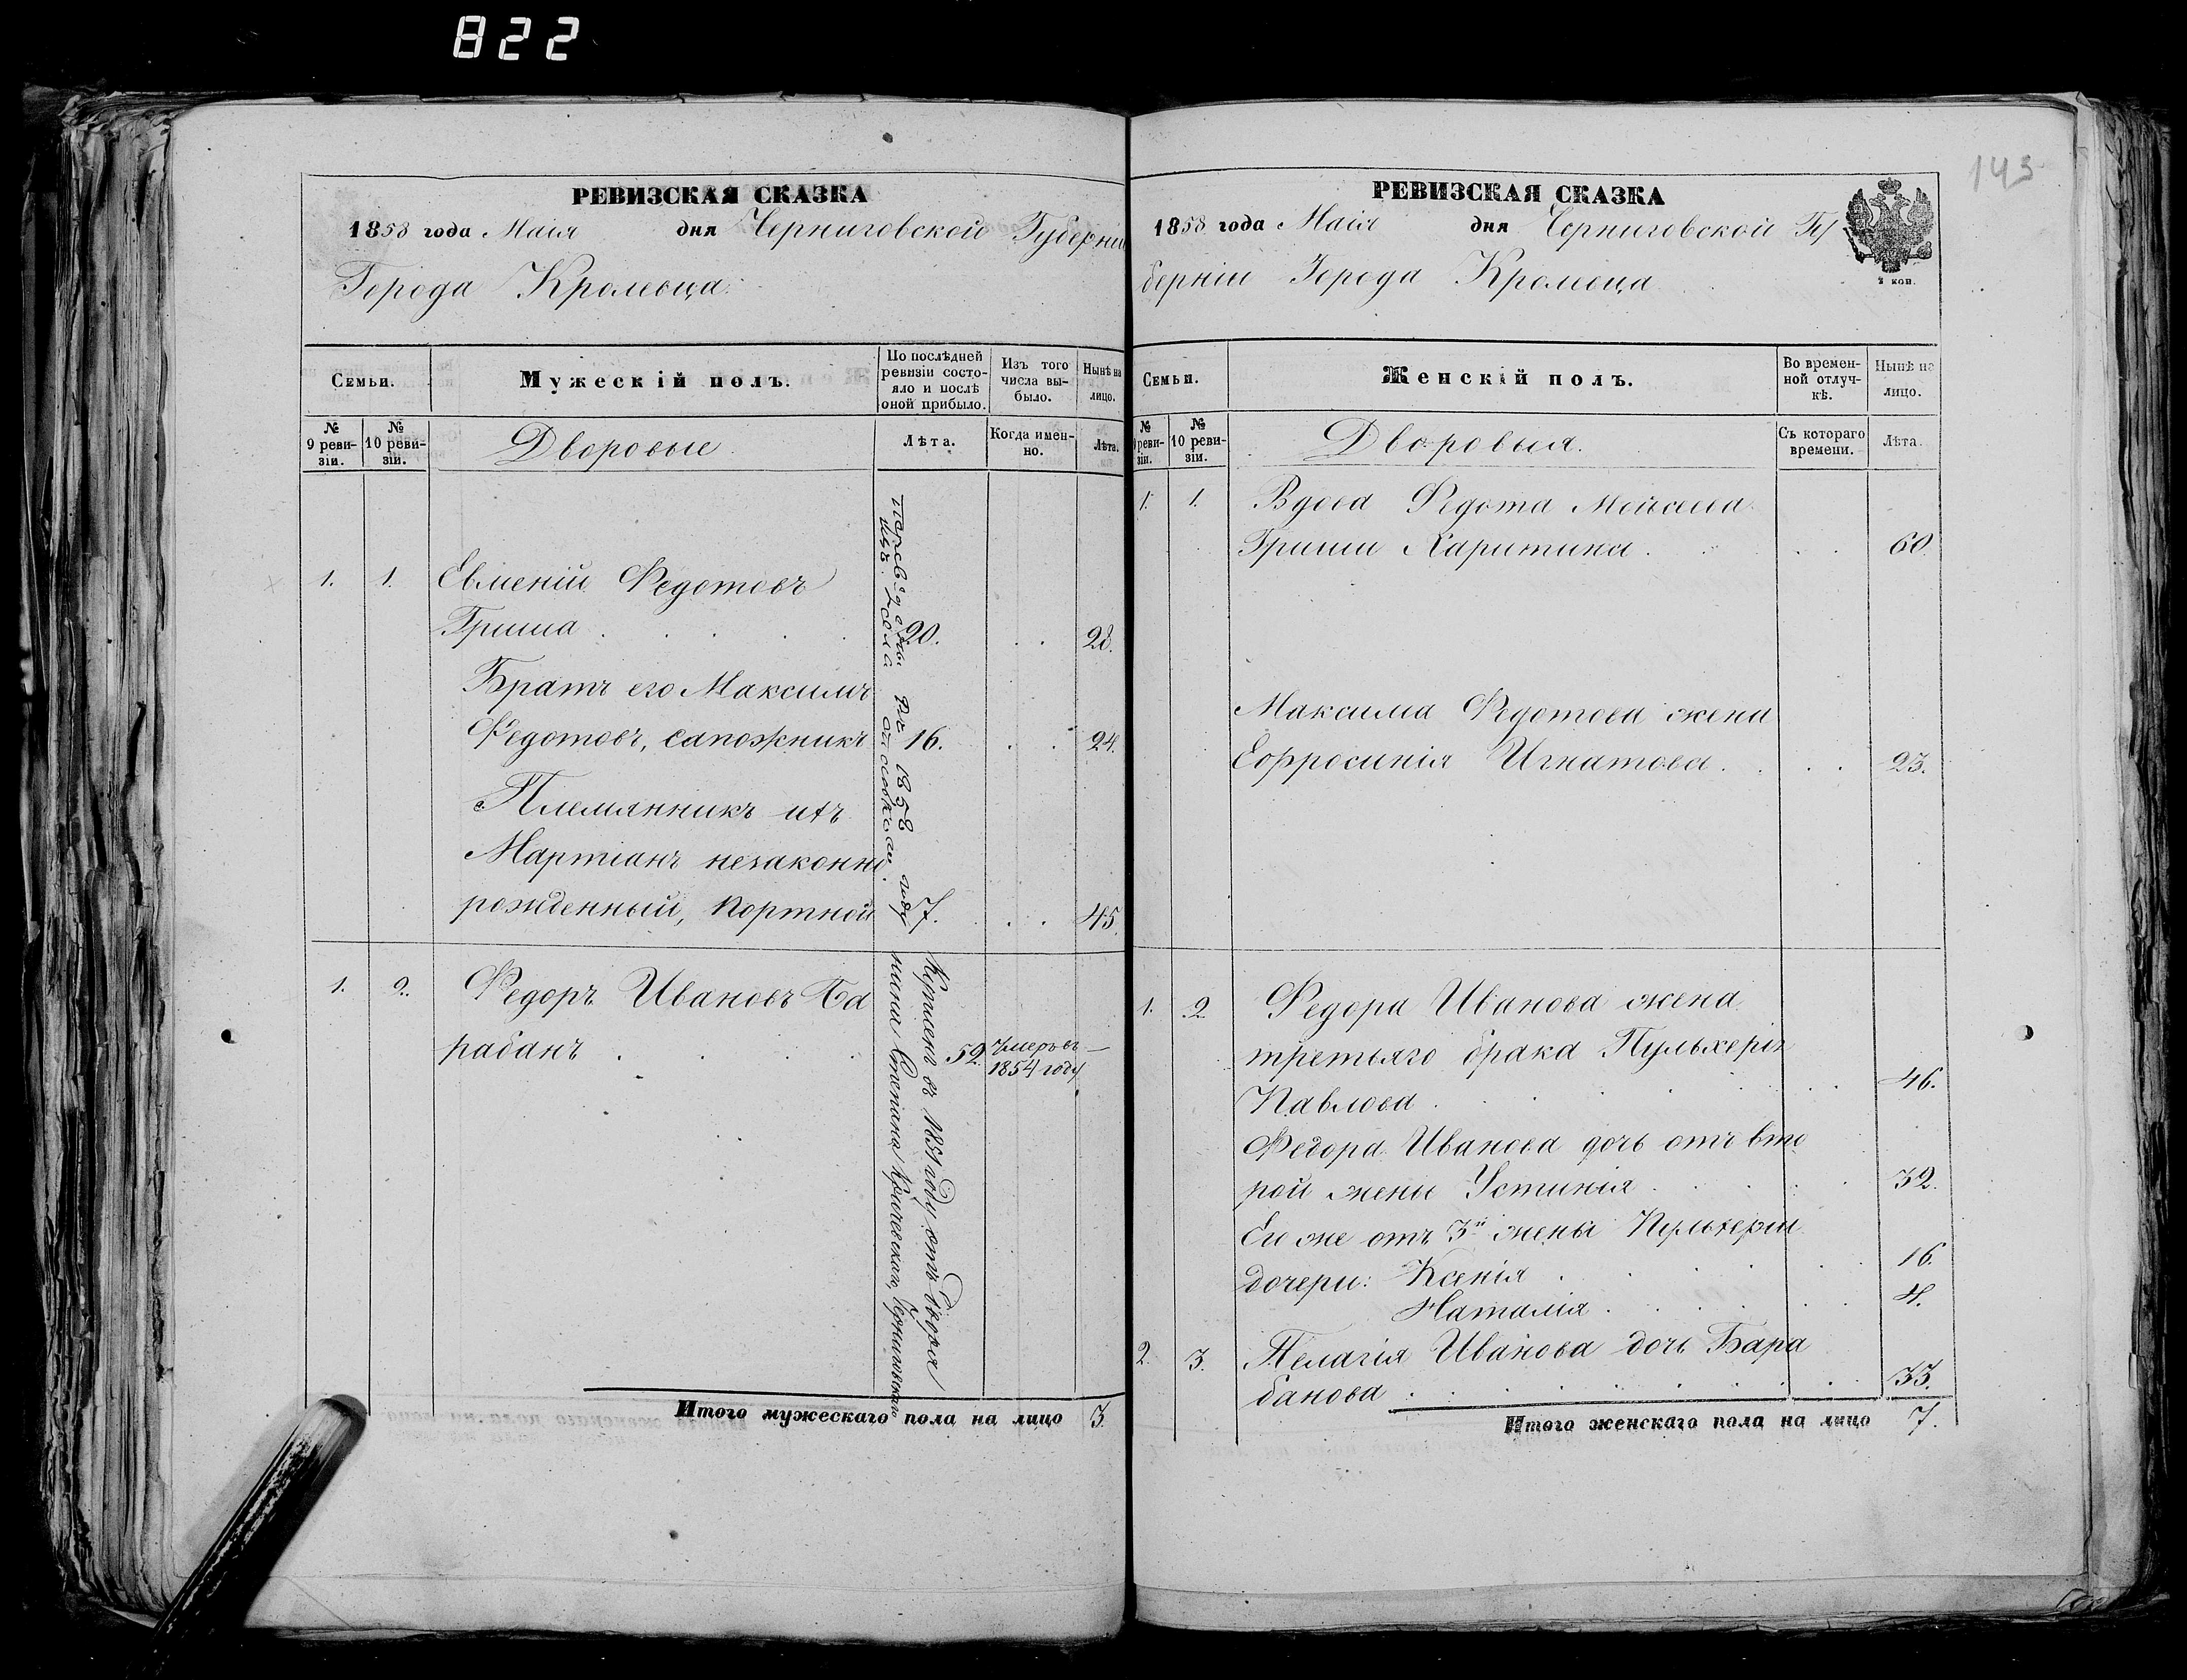 822
РЕВИЗСКАЯ СКАЗКА
1858 года Маія дня Черниговской Губерніи
Города Кролевца
Семьи.
Мужескій полъ.
По послѣдней ревизіи состояло и послѣ оной прибыло.
Изъ того числа выбыло.
Нынѣ на лицо.
№ 9 ревизіи.
№ 10 ревизіи.
Дворовые
Лѣта.
Когда именно.
Лѣта.
1. 1. Евменій Федотовъ
Гриша 20. 28.
Братъ его Максимъ
Федотовъ, сапожникъ 16. 24.
Племянникъ ихъ
Мартіанъ незаконно
рожденный, портной 7. 15.
въ 1858 году
1. 2. Федоръ Ивановъ Ба
рабанъ 52. Умеръ въ —
1854 году
Купленъ въ 1851 году отъ
Степана
Итого мужескаго пола на лицо 3.
143
РЕВИЗСКАЯ СКАЗКА
1858 года Маія дня Черниговской Гу
берніи Города Кролевца
коп.
Семьи.
Женскій полъ.
Во временной отлучкѣ.
Нынѣ на лицо.
№ 9 ревизіи.
№ 10 ревизіи.
Дворовыя.
Съ котораго времени.
Лѣта.
1. 1. Вдова Федота Мойсеева
Гриши Харитина 60.
Максима Федотова жена
Ефросинія Игнатова 23.
1. 2. Федора Иванова жена
третьяго брака Пульхерія
Павлова 46.
Федора Иванова дочь отъ вто
рой жены Устинія 32.
Ею же отъ 3й жены Пульхеріи
дочери: Ксенія 16.
Наталія 4.
2. 3. Пелагія Иванова дочь Бара
банова 33.
Итого женскаго пола на лицо 7.